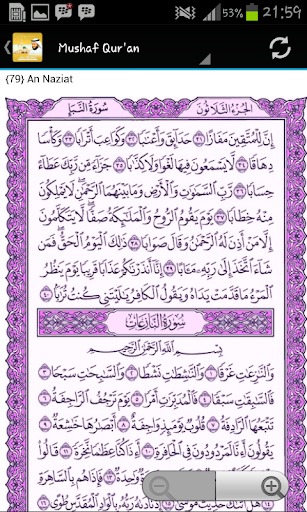 21:59
Mushaf Qur'an
{79} An Naziat
سُورَةُ النَّبَإِ
الجُزءُ الثَّلَاثُونَ
إِنَّ لِلْمُتَّقِينَ مَفَازًا ٣١ حَدَآئِقَ وَأَعْنَٰبًا ٣٢ وَكَوَاعِبَ أَتْرَابًا ٣٣ وَكَأْسًا
دِهَاقًا ٣٤ لَّا يَسْمَعُونَ فِيهَا لَغْوًا وَلَا كِذَّٰبًا ٣٥ جَزَآءً مِّن رَّبِّكَ عَطَآءً
حِسَابًا ٣٦ رَّبِّ السَّمَٰوَٰتِ وَالْأَرْضِ وَمَا بَيْنَهُمَا الرَّحْمَٰنِ لَا يَمْلِكُونَ
مِنْهُ خِطَابًا ٣٧ يَوْمَ يَقُومُ الرُّوحُ وَالْمَلَٰٓئِكَةُ صَفًّا لَّا يَتَكَلَّمُونَ
إِلَّا مَنْ أَذِنَ لَهُ الرَّحْمَٰنُ وَقَالَ صَوَابًا ٣٨ ذَٰلِكَ الْيَوْمُ الْحَقُّ فَمَن
شَآءَ اتَّخَذَ إِلَىٰ رَبِّهِ مَـَٔابًا ٣٩ إِنَّآ أَنذَرْنَٰكُمْ عَذَابًا قَرِيبًا يَوْمَ يَنظُرُ
الْمَرْءُ مَا قَدَّمَتْ يَدَاهُ وَيَقُولُ الْكَافِرُ يَٰلَيْتَنِي كُنتُ تُرَٰبًا ٤٠
سُورَةُ النَّازِعَاتِ
بِسْمِ اللَّهِ الرَّحْمَٰنِ الرَّحِيمِ
وَالنَّٰزِعَٰتِ غَرْقًا ١ وَالنَّٰشِطَٰتِ نَشْطًا ٢ وَالسَّٰبِحَٰتِ سَبْحًا ٣
فَالسَّٰبِقَٰتِ سَبْقًا ٤ فَالْمُدَبِّرَٰتِ أَمْرًا ٥ يَوْمَ تَرْجُفُ الرَّاجِفَةُ ٦
تَتْبَعُهَا الرَّادِفَةُ ٧ قُلُوبٌ يَوْمَئِذٍ وَاجِفَةٌ ٨ أَبْصَٰرُهَا خَٰشِعَةٌ ٩
يَقُولُونَ أَءِنَّا لَمَرْدُودُونَ فِي الْحَافِرَةِ ١٠ أَءِذَا كُنَّا عِظَٰمًا نَّخِرَةً ١١
وَٰحِدَةٌ ١٣ فَإِذَا هُم بِالسَّاهِرَةِ
١٤ هَلْ أَتَىٰكَ حَدِيثُ مُوسَىٰٓ ١٥ رَبُّهُ بِالْوَادِ الْمُقَدَّسِ طُوًى ١٦